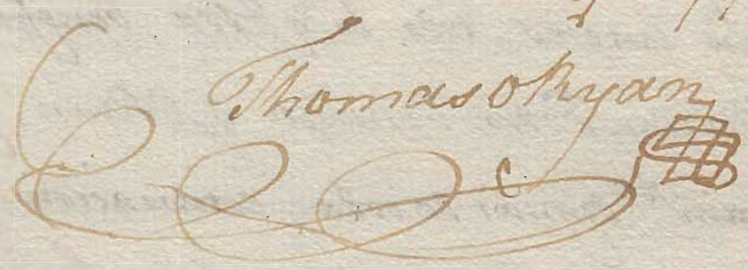 Thomas o Ryan